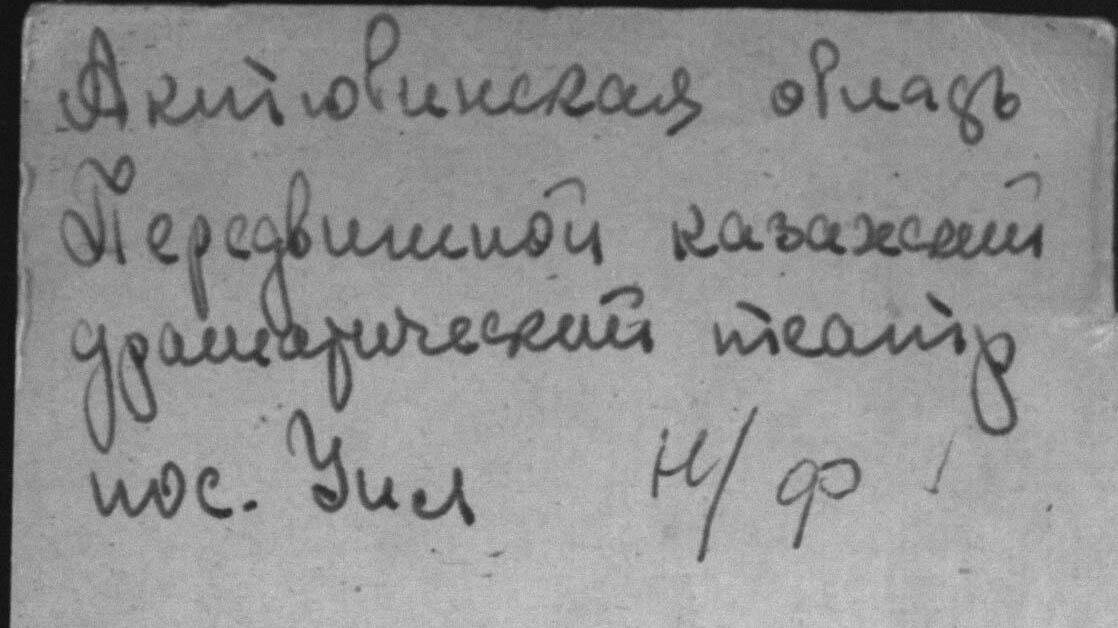 Актюбинская область
Передвижной казахский
драматический театр
пос. Уил н/ф